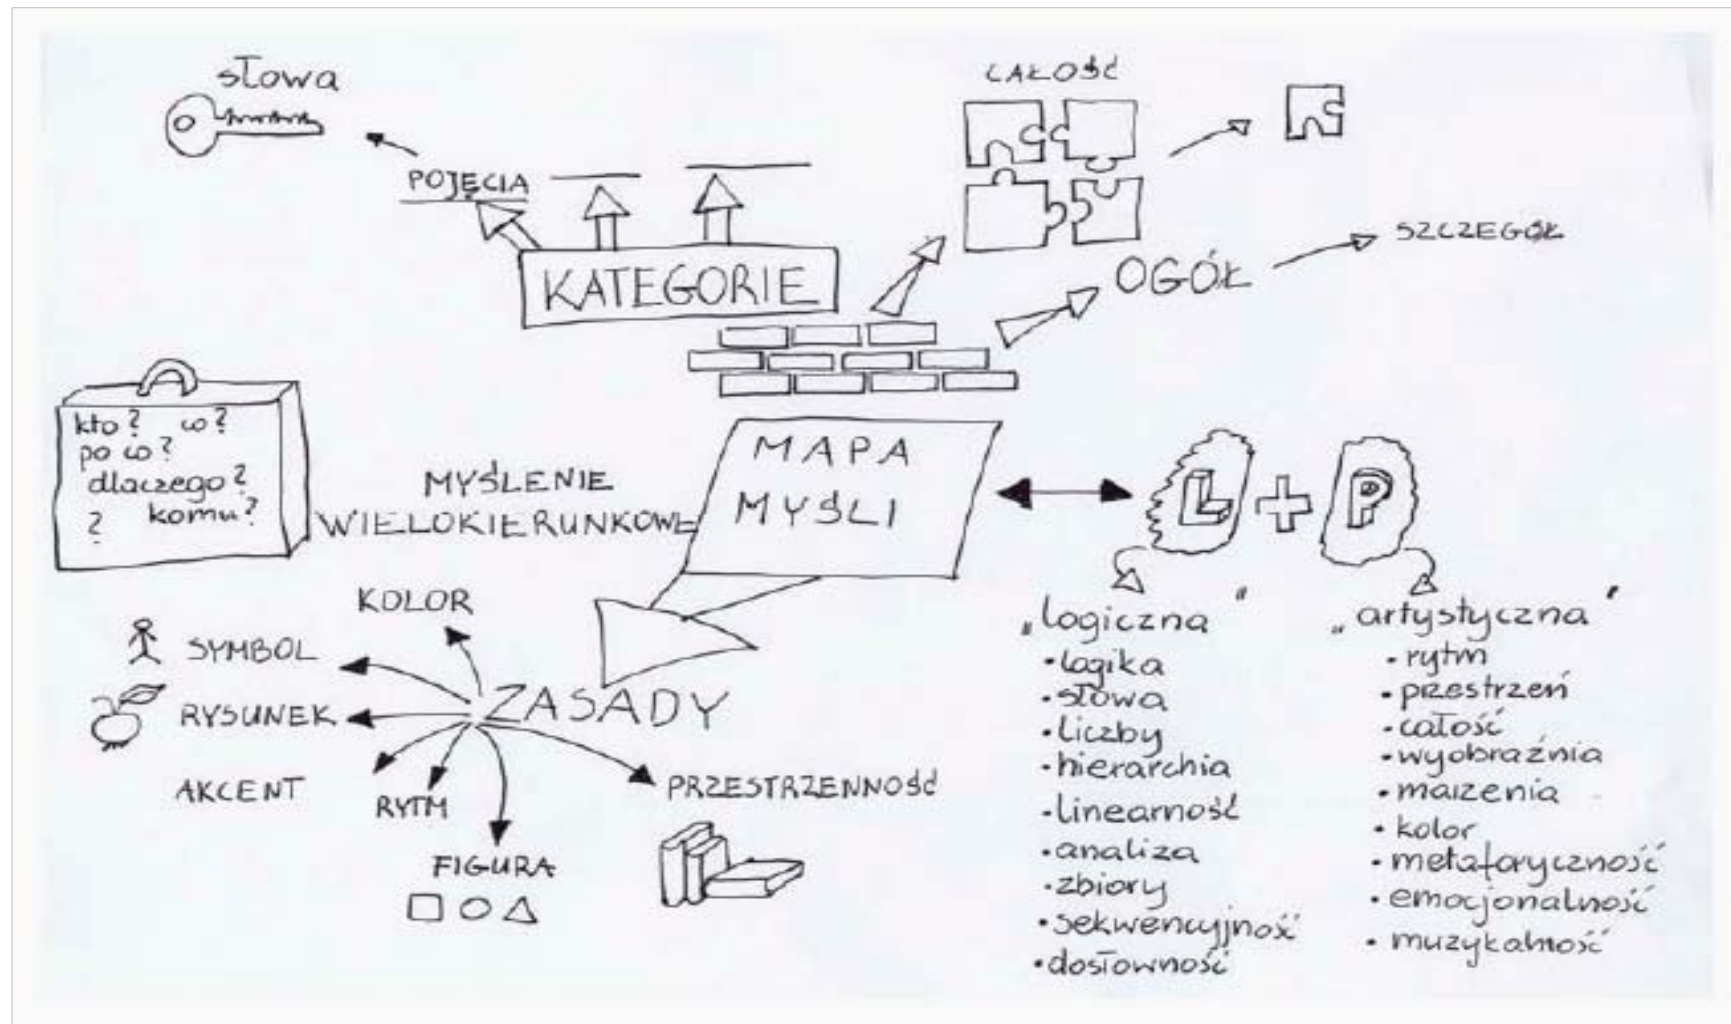 słowa
POJĘCIA
KATEGORIE
CAŁOŚĆ
OGÓŁ
SZCZEGÓŁ
kto? co?
po co?
dlaczego?
komu?
?
MYŚLENIE
WIELOKIERUNKOWE
MAPA
MYŚLI
L + P
KOLOR
SYMBOL
RYSUNEK
AKCENT
RYTM
FIGURA
ZASADY
PRZESTRZENNOŚĆ
„logiczna"
• logika
• słowa
• liczby
• hierarchia
• linearność
• analiza
• zbiory
• sekwencyjność
• dosłowność
„artystyczna"
• rytm
• przestrzeń
• całość
• wyobraźnia
• marzenia
• kolor
• metaforyczność
• emocjonalność
• muzykalność